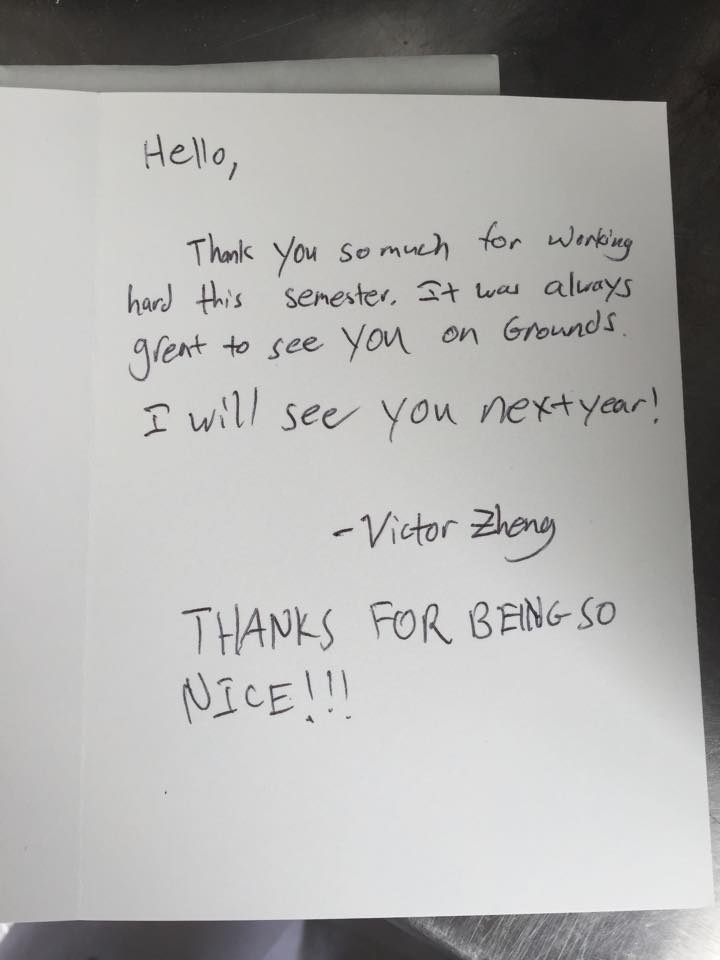 Hello,
Thank you so much for working
hard this semester. It was always
great to see you on Grounds.
I will see you next year!
-Victor Zheng
THANKS FOR BEING SO
NICE!!!